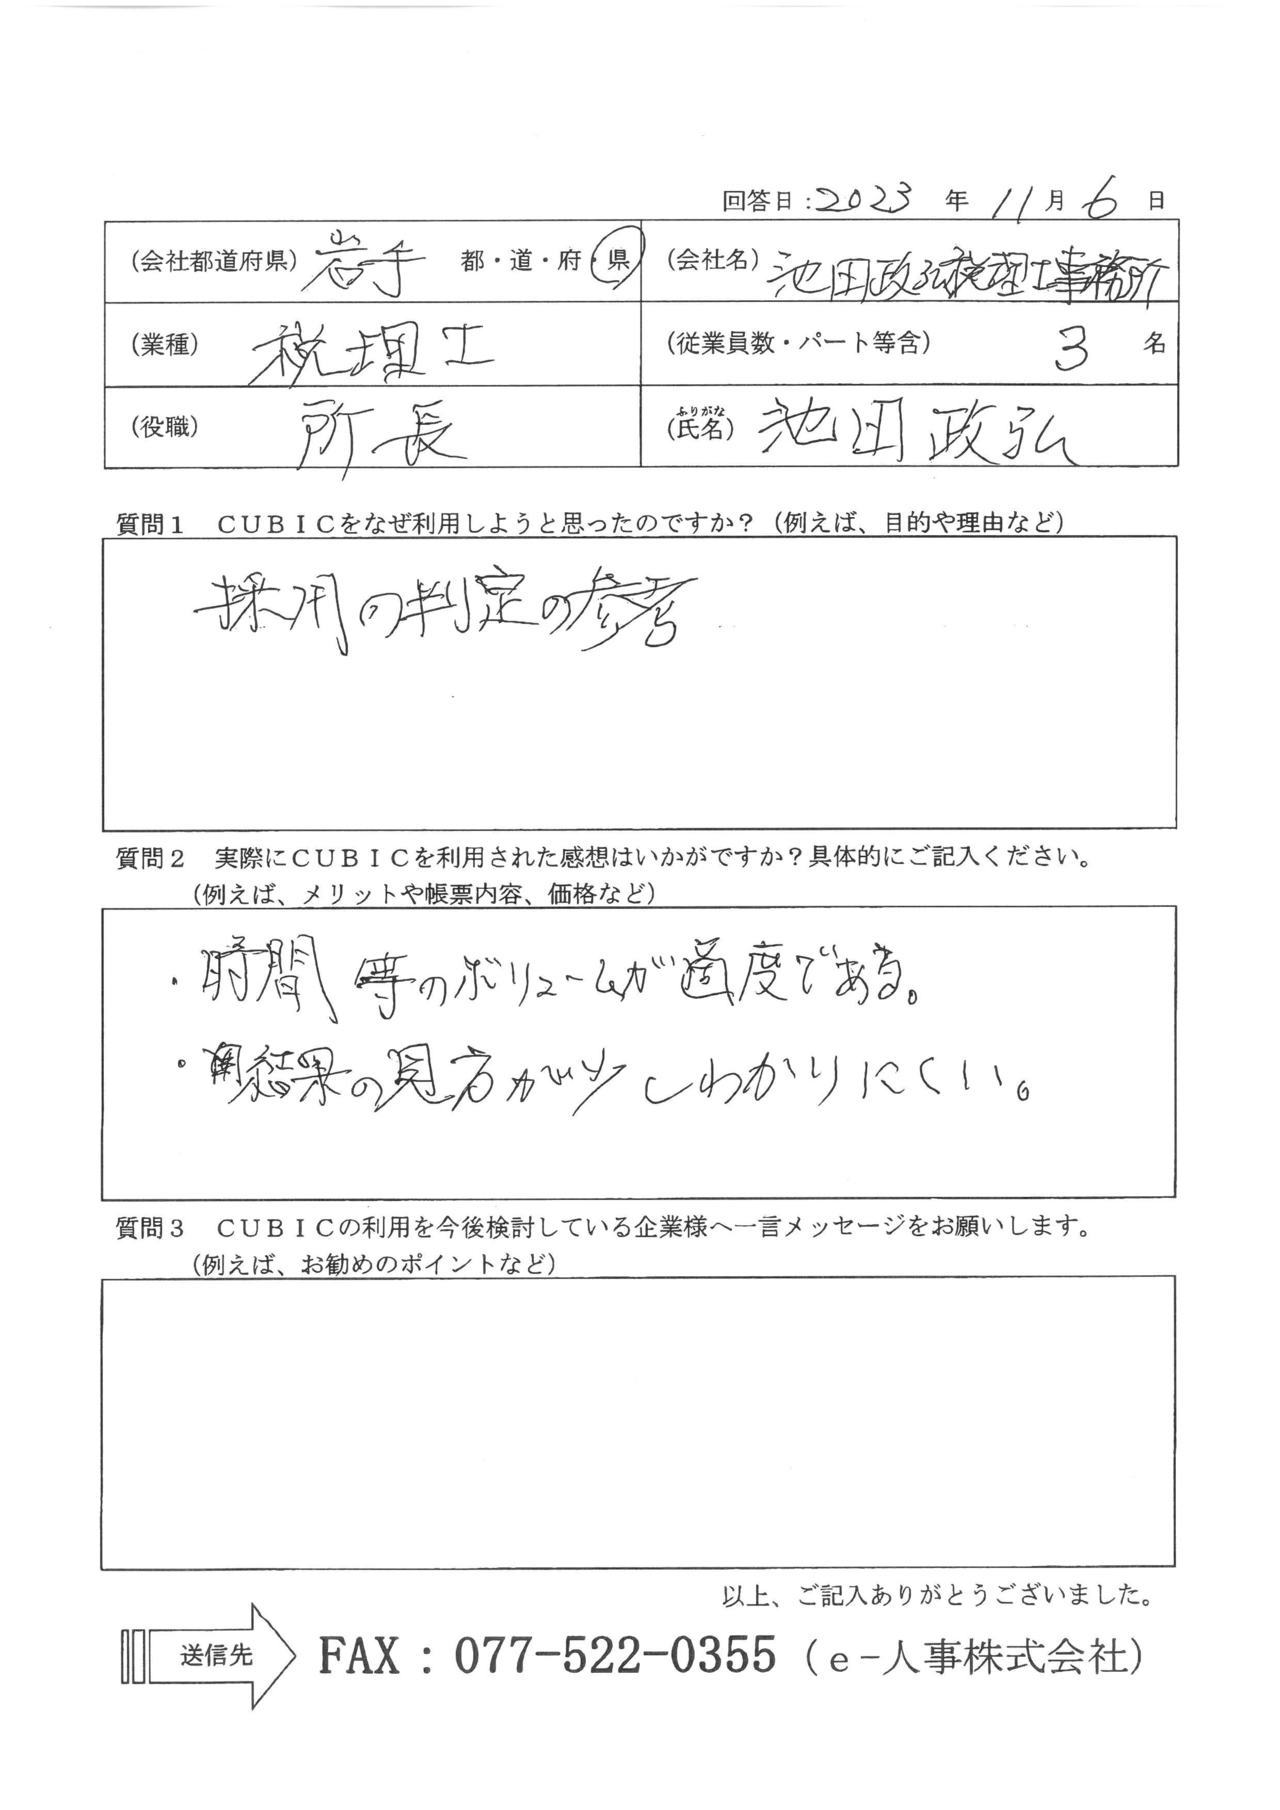 回答日：2023 年 11月 6 日
(会社都道府県) 岩手 都・道・府・県 (会社名) 池田政弘税理士事務所
(業種) 税理士 (従業員数・パート等含) 3 名
ふりがな
(役職) 所長 (氏名) 池田政弘
質問１ ＣＵＢＩＣをなぜ利用しようと思ったのですか？（例えば、目的や理由など）
採用の判定の参考
質問２ 実際にＣＵＢＩＣを利用された感想はいかがですか？具体的にご記入ください。
（例えば、メリットや帳票内容、価格など）
・時間 等のボリュームが適度である。
・結果の見方が少しわかりにくい。
質問３ ＣＵＢＩＣの利用を今後検討している企業様へ一言メッセージをお願いします。
（例えば、お勧めのポイントなど）
以上、ご記入ありがとうございました。
送信先 FAX：077-522-0355（ｅ-人事株式会社）